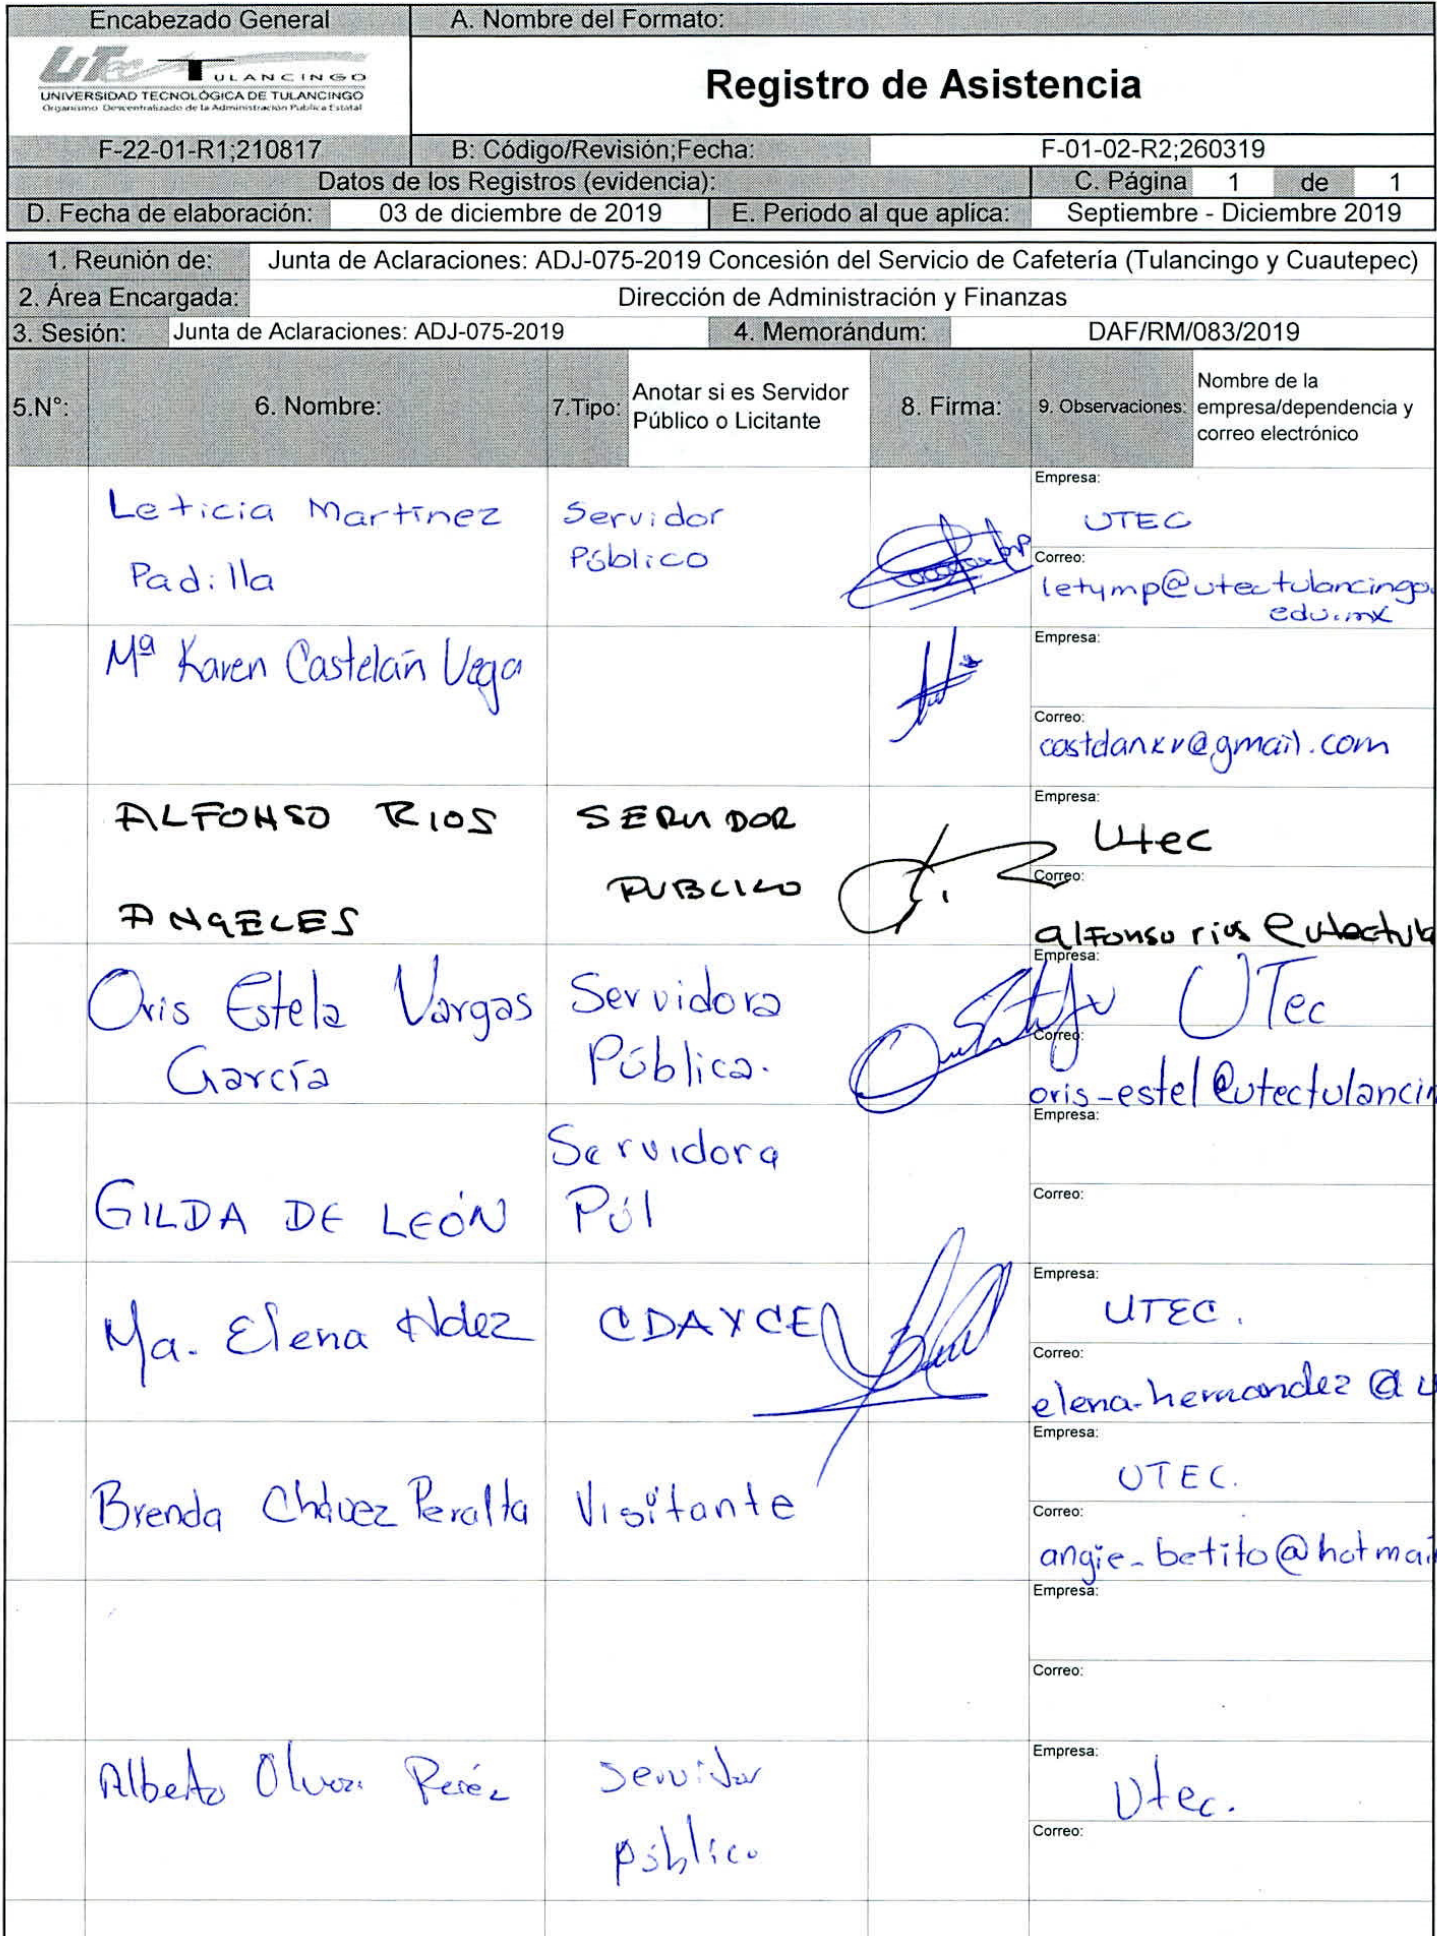 Encabezado General
A. Nombre del Formato:
UTec TULANCINGO
UNIVERSIDAD TECNOLÓGICA DE TULANCINGO
Organismo Descentralizado de la Administración Pública Estatal
Registro de Asistencia
F-22-01-R1;210817
B: Código/Revisión;Fecha:
F-01-02-R2;260319
Datos de los Registros (evidencia):
C. Página 1 de 1
D. Fecha de elaboración: 03 de diciembre de 2019
E. Periodo al que aplica: Septiembre - Diciembre 2019
1. Reunión de: Junta de Aclaraciones: ADJ-075-2019 Concesión del Servicio de Cafetería (Tulancingo y Cuautepec)
2. Área Encargada: Dirección de Administración y Finanzas
3. Sesión: Junta de Aclaraciones: ADJ-075-2019
4. Memorándum: DAF/RM/083/2019
5.N°:
6. Nombre:
7.Tipo:
Anotar si es Servidor
Público o Licitante
8. Firma:
9. Observaciones:
Nombre de la
empresa/dependencia y
correo electrónico
Leticia Martínez
Padilla
Servidor
Público
Empresa:
UTEC
Correo:
letymp@utectulancingo.
edu.mx
Mª Karen Castelán Vega
Empresa:
Correo:
castelankv@gmail.com
ALFONSO RIOS
ANGELES
SERVIDOR
PUBLICO
Empresa:
Utec
Correo:
alfonso rios@utectula
Oris Estela Vargas
García
Servidora
Pública.
Empresa:
UTec
Correo:
oris-estel@utectulancin
GILDA DE LEÓN
Servidora
Púl
Empresa:
Correo:
Ma. Elena Hdez
CDAYCE
Empresa:
UTEC.
Correo:
elena-hernandez@u
Brenda Chávez Peralta
Visitante
Empresa:
UTEC.
Correo:
angie_betito@hotmai
Empresa:
Correo:
Alberto Pérez
Servidor
público
Empresa:
Utec.
Correo: